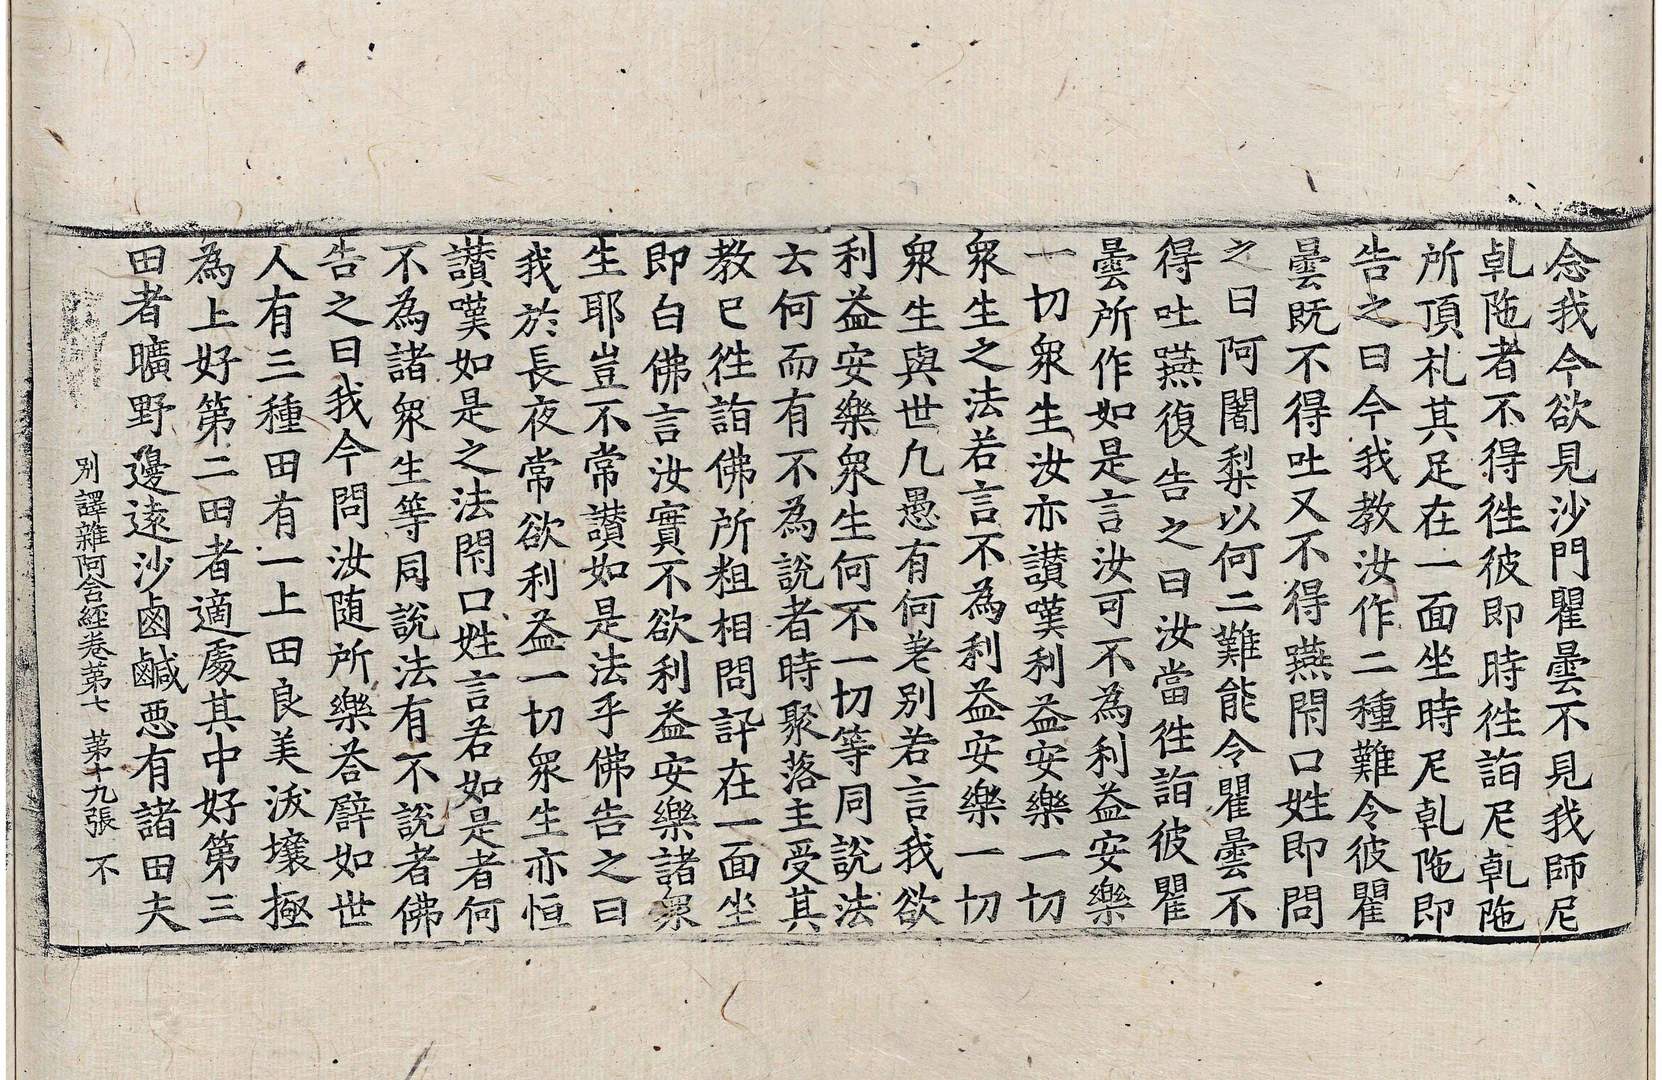 念我今欲見沙門瞿曇不見我師尼
乹陁者不得徃彼即時徃詣尼乹陁
所頂礼其足在一面坐時尼乹陁即
告之曰今我教汝作二種難令彼瞿
曇既不得吐又不得嚥閇口姓即問
之曰阿闍梨以何二難能令瞿曇不
得吐嚥復告之曰汝當徃詣彼瞿
曇所作如是言汝可不為利益安樂
一切衆生汝亦讃嘆利益安樂一切
衆生之法若言不為利益安樂一切
衆生與世凢愚有何差别若言我欲
利益安樂衆生何不一切等同說法
云何而有不為說者時聚落主受其
教已徃詣佛所粗相問訊在一面坐
即白佛言汝實不欲利益安樂諸衆
生耶豈不常讃如是法乎佛告之曰
我於長夜常欲利益一切衆生亦恒
讃嘆如是之法閇口姓言若如是者何
不為諸衆生等同說法有不說者佛
告之曰我今問汝随所樂荅譬如世
人有三種田有一上田良美沃壤極
為上好第二田者適處其中好第三
田者曠野邊遠沙鹵鹹惡有諸田夫
别譯雜阿含經卷第七 第十九張 不